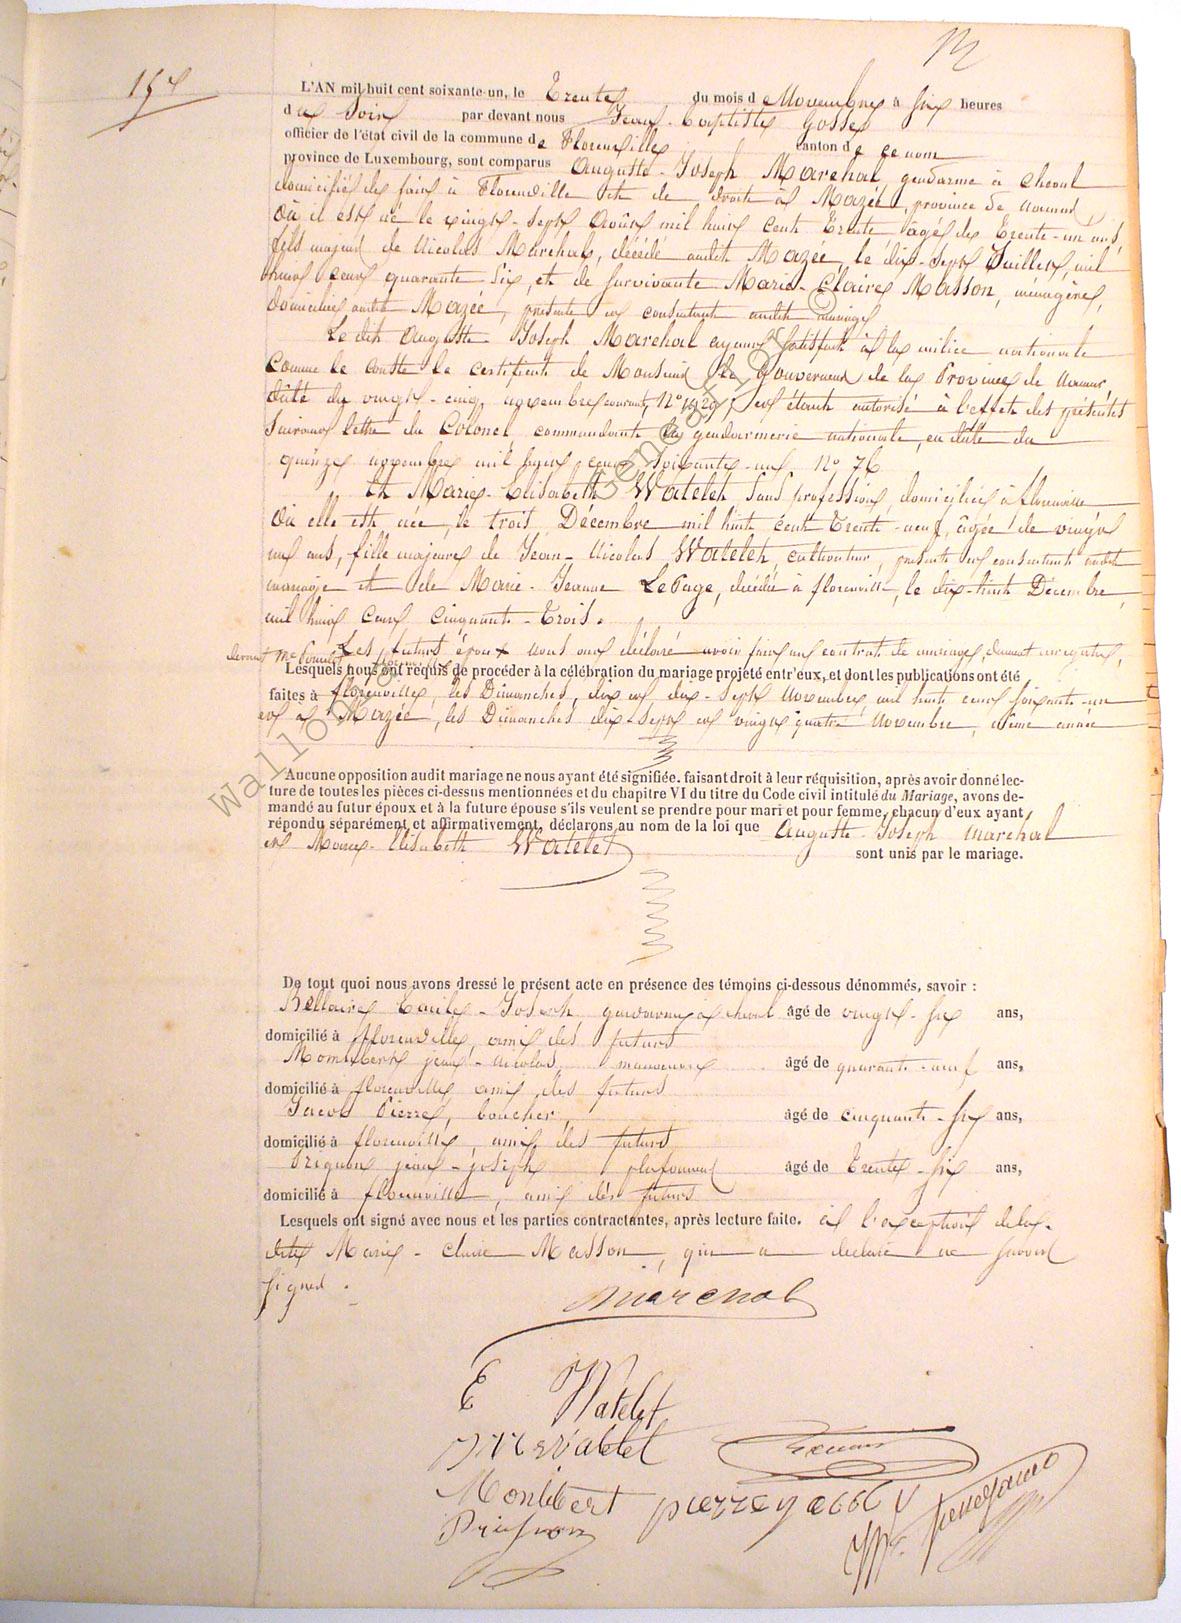 154
L'AN mil huit cent soixante-un, le Trente du mois de Novembre à six heures
du Soir par devant nous Jean-Baptiste Gosse
officier de l'état civil de la commune de Florenville canton de ce nom
province de Luxembourg, sont comparus Auguste-Joseph Marchal gendarme à cheval
domicilié de fait à Florenville et de droit à Mazée, province de Namur,
où il est né le vingt-sept Août mil huit cent Trente âgé de Trente-un ans
fils majeur de Nicolas Marchal, décédé audit Mazée, le dix-sept Juillet, mil
huit cent quarante six, et de survivante Marie-Claire Masson, ménagère,
domiciliée audit Mazée, présente et consentant audit mariage
Le dit Auguste-Joseph Marchal ayant satisfait à la milice nationale
comme le conste le certificat de Monsieur le Gouverneur de la Province de Namur
daté du vingt-cinq novembre courant, N° 1929, et étant autorisé à l'effet des présentes
suivant lettre du Colonel commandant la gendarmerie nationale, en date du
quinze novembre mil huit cent soixante-un N° 76
Et Marie-Elisabeth Watelet sans profession, domiciliée à florenville
où elle est née, le trois Décembre mil huit cent Trente-neuf, âgée de vingt
un ans, fille majeure de Jean-Nicolas Watelet, cultivateur, présent et consentant audit
mariage et de Marie-Jeanne LePage, décédée à florenville, le dix-huit Décembre
mil huit cent cinquante-Trois.
Les futurs époux nous ont déclaré avoir fait un contrat de mariage, devant
devant Me
Lesquels nous ont requis de procéder à la célébration du mariage projeté entr'eux, et dont les publications ont été
faites à florenville, les Dimanches, dix et dix-sept Novembre mil huit cent soixante-un
et à Mazée, les Dimanches dix-sept et vingt quatre Novembre, même année
Aucune opposition audit mariage ne nous ayant été signifiée, faisant droit à leur réquisition, après avoir donné lec-
ture de toutes les pièces ci-dessus mentionnées et du chapitre VI du titre du Code civil intitulé du Mariage, avons de-
mandé au futur époux et à la future épouse s'ils veulent se prendre pour mari et pour femme, chacun d'eux ayant
répondu séparément et affirmativement, déclarons au nom de la loi que Auguste-Joseph Marchal
et Marie-Elisabeth Watelet
sont unis par le mariage.
De tout quoi nous avons dressé le présent acte en présence des témoins ci-dessous dénommés, savoir :
Bellaire Emile-Joseph gendarme à cheval âgé de vingt-six ans,
domicilié à florenville, ami des futurs
Momlbert jean-nicolas manoeuvre âgé de quarante-neuf ans,
domicilié à florenville ami des futurs
Jacob Pierre, boucher âgé de cinquante-six ans,
domicilié à florenville, ami des futurs
Prignon jean-joseph plafonneur âgé de Trente-six ans,
domicilié à florenville, ami des futurs
Lesquels ont signé avec nous et les parties contractantes, après lecture faite. à l'exception de la
dite Marie-Claire Masson, qui a déclaré ne savoir
signer.
Marchal
E Watelet
JN Watelet
Monlbert pierre yacob
Prignon
Wallonie
Geneanet
©